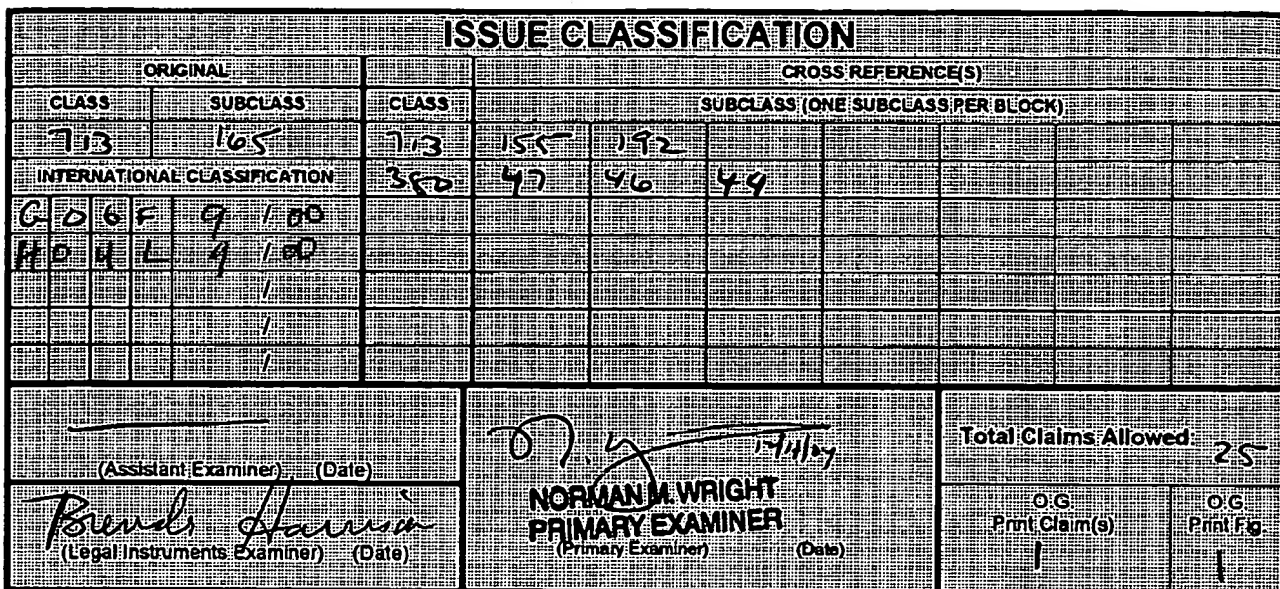 ISSUE CLASSIFICATION
ORIGINAL CROSS REFERENCE(S)
CLASS SUBCLASS CLASS SUBCLASS (ONE SUBCLASS PER BLOCK)
713 165 713 155 192
INTERNATIONAL CLASSIFICATION 380 47 46 49
G 0 6 F 9 / 00
H 0 4 L 9 / 00
/
/
/
(Assistant Examiner) (Date)
Brenda Harrison
(Legal Instruments Examiner) (Date)
NORMAN M. WRIGHT
PRIMARY EXAMINER
(Primary Examiner) (Date)
Total Claims Allowed: 25
O.G. Print Claim(s) O.G. Print Fig.
1 1